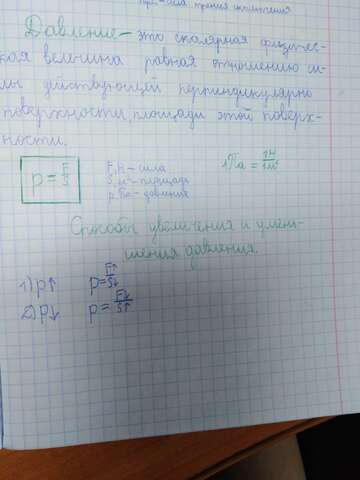 тр.-сила трения скольжения
Давление - это скалярная физичес-
кая величина равная отношению си-
лы действующей перпендикулярно
поверхности, площади этой поверх-
ности.
p = F/S
F, Н - сила
S, м² - площадь
p, Па - давление
1Па = 1Н/1м²
Способы увеличения и умень-
шения давления.
1) p↑ p = F↑/S↓
2) p↓ p = F↓/S↑